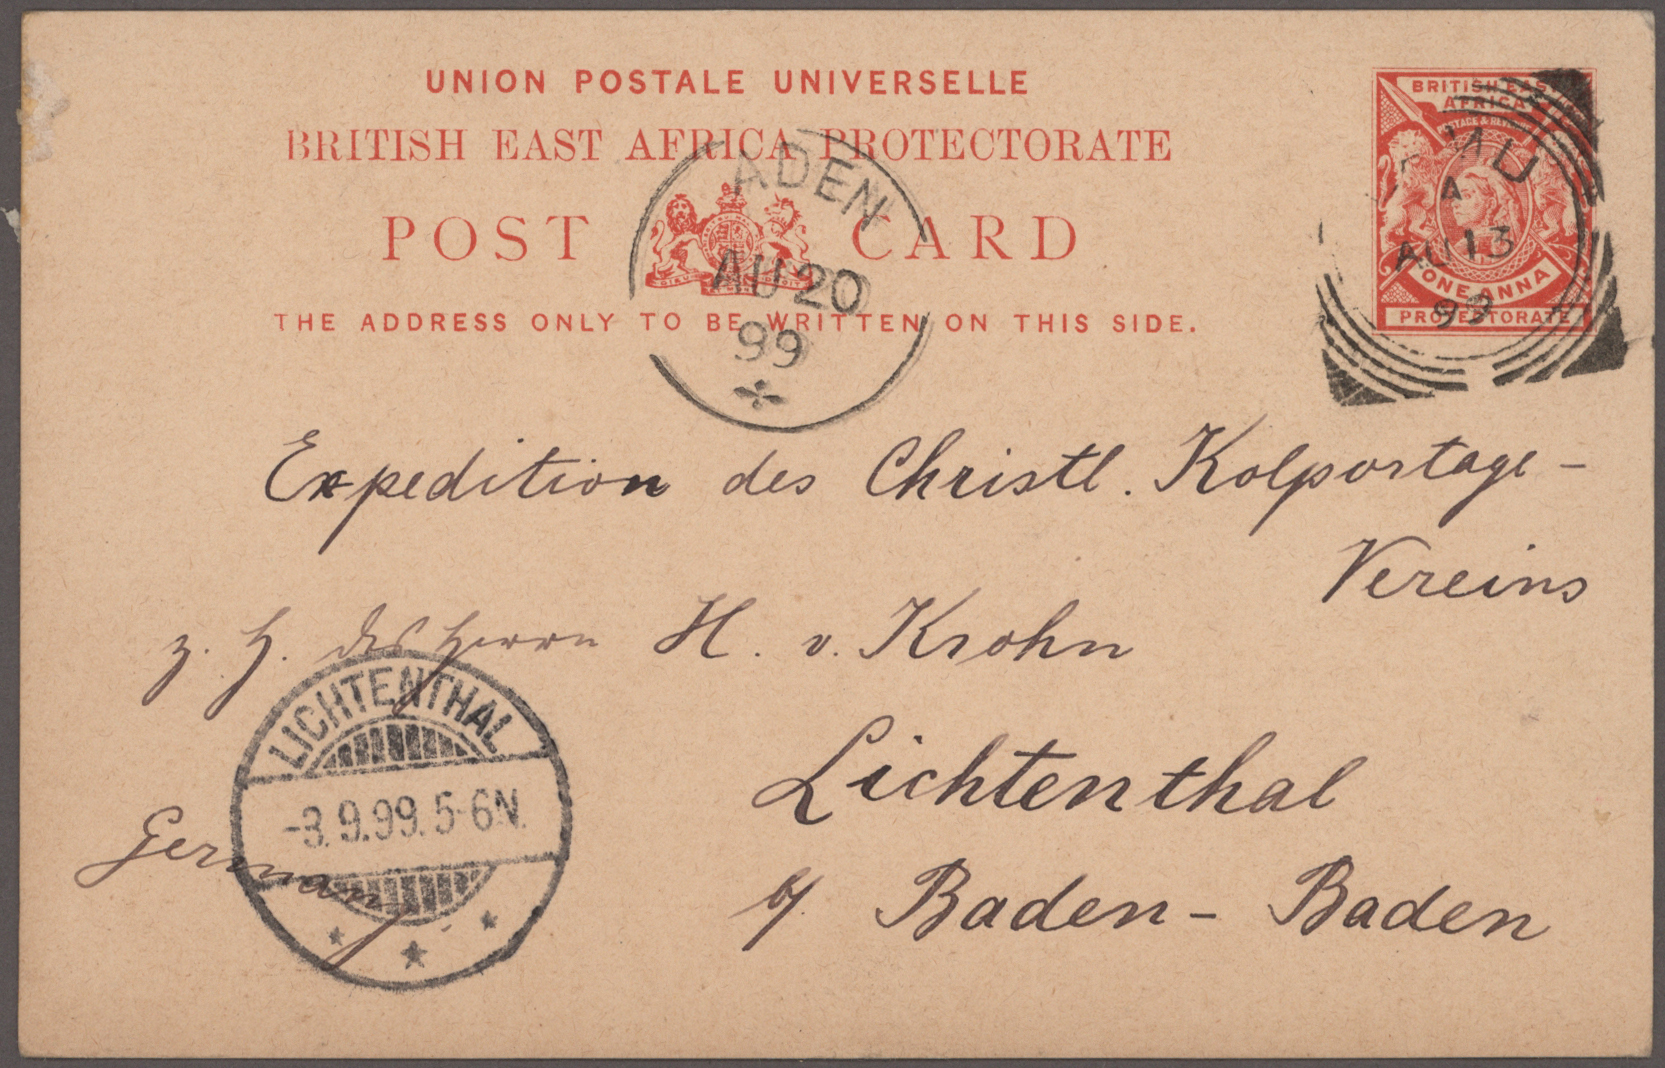 UNION POSTALE UNIVERSELLE
BRITISH EAST AFRICA PROTECTORATE
POST CARD
THE ADDRESS ONLY TO BE WRITTEN ON THIS SIDE.
BRITISH EAST
AFRICA
ONE ANNA
PROTECTORATE
MU
A
AU 13
99
ADEN
AU 20
99
Expedition des Christl. Kolportage-
Vereins
z. H. des Herrn H. v. Krohn
LICHTENTHAL
-3.9.99. 5-6N.
Lichtenthal
b/ Baden-Baden
Germany